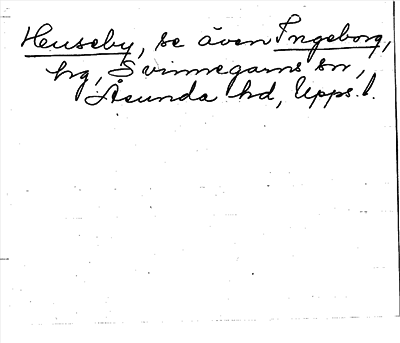 Heuseby, se även Ingeborg,
hg, Svinnegarns sn,
Åsunda hd, Upps. l.